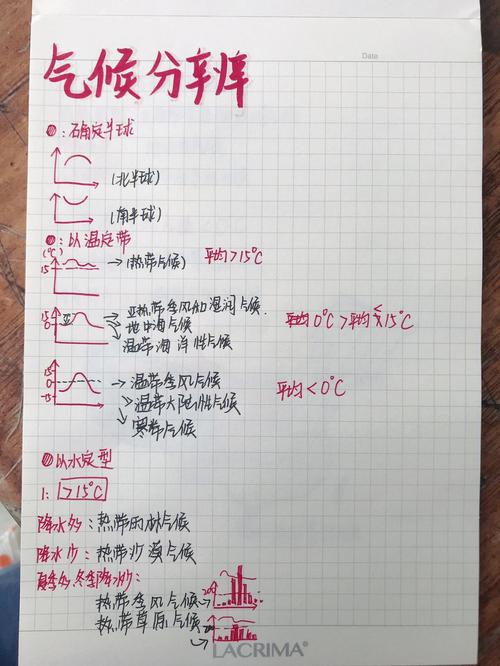 Date
气候分辨
①:确定半球
(北半球)
(南半球)
②:以温定带
(℃)
15
→(热带气候) 平均>15℃
15
0
亚
→亚热带季风和湿润气候.
→地中海气候
温带海洋性气候
平均0℃>平均<15℃
15
0
-15
→温带季风气候
温带大陆性气候
寒带气候
平均<0℃
③以水定型
1: >15℃
降水多:热带雨林气候
降水少:热带沙漠气候
夏季多,冬季降水少:
热带季风气候→
200
热带草原气候→
200
LACRIMA